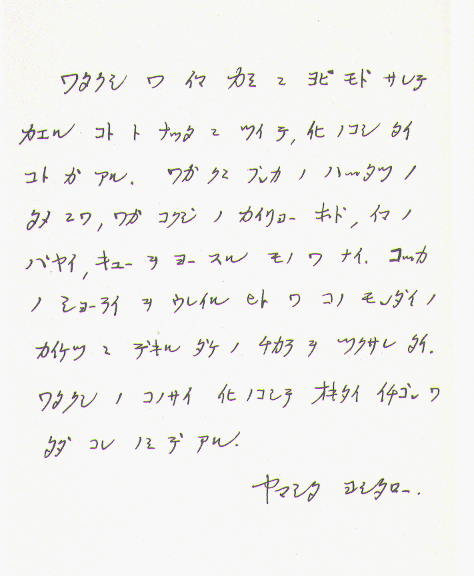 ワタクシ ワ イマ カミ ニ ヨビ モド サレテ
カエル コト ト ナッタ ニ ツイ テ, イヒ ノコシ タイ
コト ガ アル. ワガ クニ ブンカ ノ ハッタツ ノ
タメ ニワ, ワガ コクジ ノ カイリョー ホド, イマ ノ
バヤイ, キュー ヲ ヨー スル モノ ワ ナイ. コッカ
ノ ショーライ ヲ ウレイル ヒト ワ コノ モンダイ ノ
カイケツ ニ デキル ダケ ノ チカラ ヲ ツクサレ タイ.
ワタクシ ノ コノサイ イヒ ノコシテ オキタイ イチゴン ワ
タダ コレ ノミ デ アル.
ヤマシタ ヨシタロー.